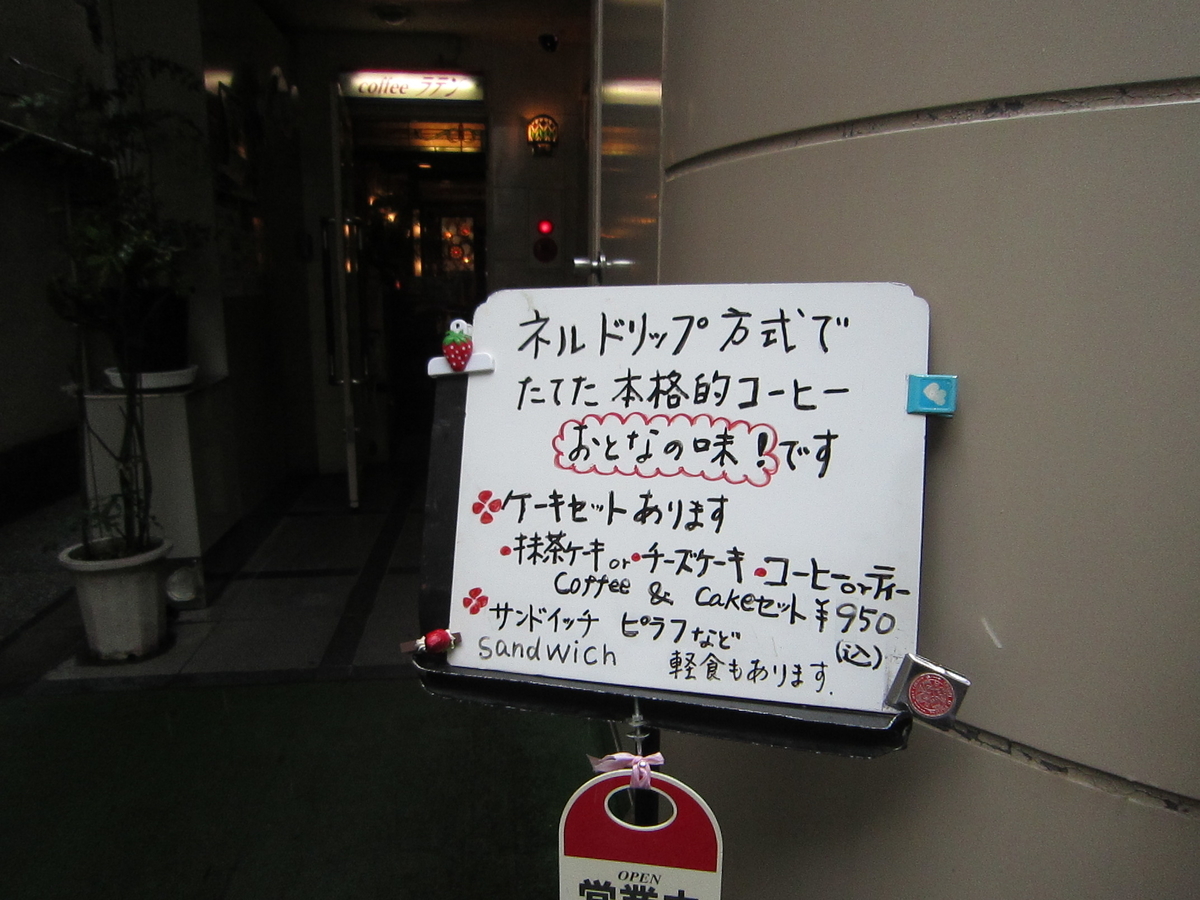 coffee ラテン
ネルドリップ方式で
たてた本格的コーヒー
おとなの味!です
ケーキセットあります
・抹茶ケーキor・チーズケーキ・コーヒーorティー
coffee & cakeセット¥950
サンドイッチ ピラフなど (込)
sandwich 軽食もあります.
OPEN
営業中